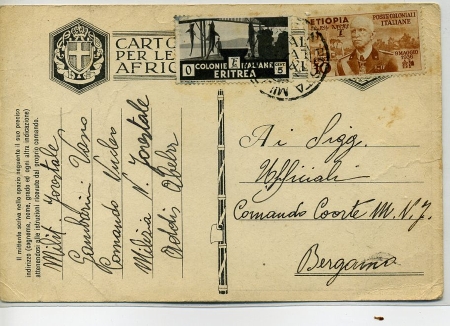 CARTO
PER LE
AFRIC
COLONIE ITALIANE
ERITREA
CENT 5
ETIOPIA
POSTE COLONIALI
ITALIANE
9 MAGGIO
1936
Il mittente scriva nello spazio seguente il suo preciso
indirizzo (cognome, nome, grado ed ogni altra indicazione)
attenendosi alle istruzioni ricevute dal proprio comando.
Milit Forestale
Comando Nucleo
Milizia N. Forestale
Addis Abeba
Ai Sigg.
Ufficiali
Comando Coorte M. N. F.
Bergamo